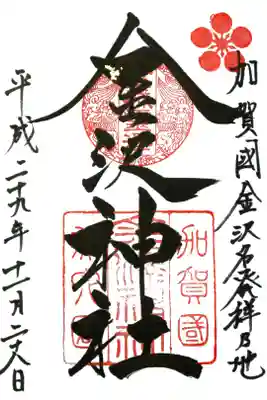 加賀國金沢名発祥乃地
金沢神社
加賀國
平成二十九年十一月二十八日